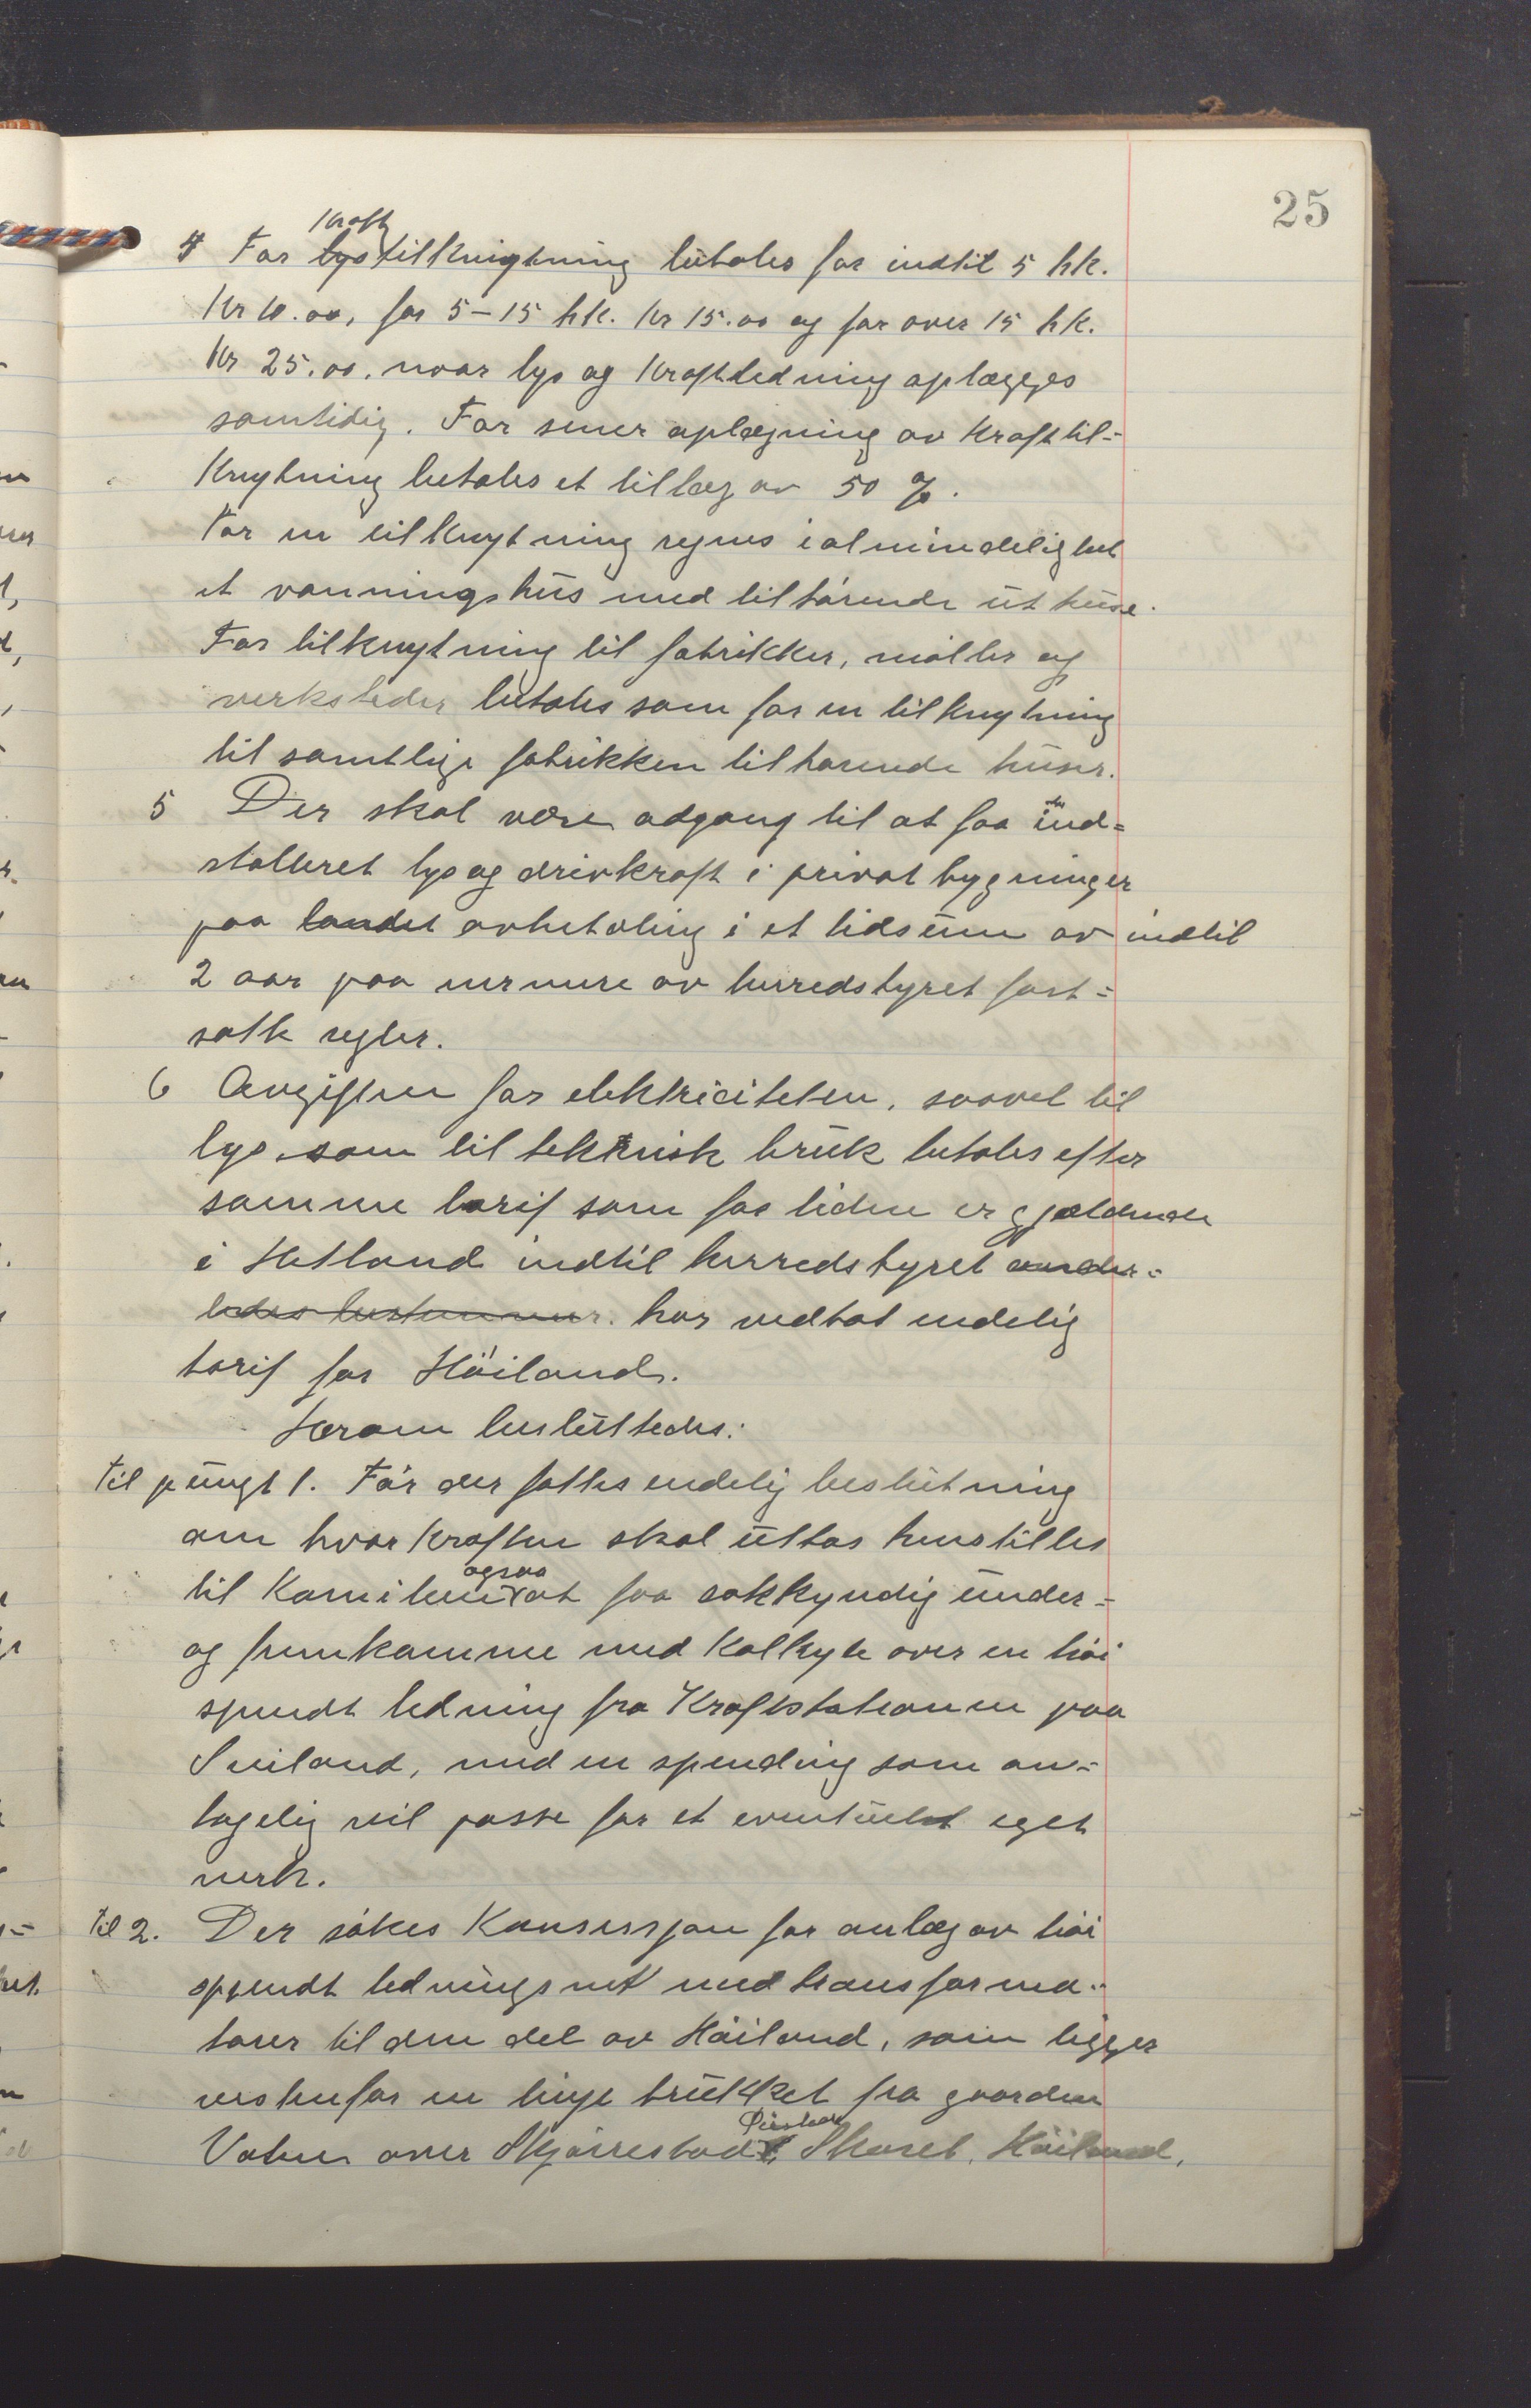 25
4 For ~~lys~~ krafttilknytning betales for indtil 5 hk.
Kr 10.00, for 5-15 hk. Kr 15.00 og for over 15 hk.
Kr 25.00. naar lys og Kraftledning oplægges
samtidig. For sener oplægning av Krafttil=
Knytning betales et tillæg av 50 %.
For en tilknytning regnes i almindelighet
et vaaningshus med tilhørende uthuse.
For tilknytning til fabrikker, møller og
verksteder betales som for en tilknytning
til samtlige fabrikken tilhørende huser.
5 Der skal være adgang til at faa ind=
stalleret lys og drivkraft i privat bygninger
paa ~~landet~~ avbetaling i et tidsrum av indtil
2 aar paa nærmere av herredstyret fast=
satte regler.
6 Avgiften for elektriciteten, saavel til
lys som til teknisk bruk betales efter
samme tarif som for tiden er gjældende
i Hetland indtil herredstyret ~~ander=~~
~~ledes bestemmer.~~ har vedtat endelig
tarif for Høiland.
Herom besluttedes:
Til pungt 1. Før der fattes endelig beslutning
om hvor Kraften skal uttas henstilles
til Komiteen ogsaa at faa sakkyndig under=
og fremkomme med Kalkyle over en høi
spendt ledning fra Kraftstationen paa
Sviland, med en spending som an=
tagelig vil passe for et eventuelt eget
verk.
Til 2. Der søkes Konsessjon for anlæg av høi
spendt ledningsnet med transforma=
torer til den del av Høiland, som ligger
vestenfor en linje trukket fra gaarden
Vatne over Skjørrestad, Skaset, Høiland,